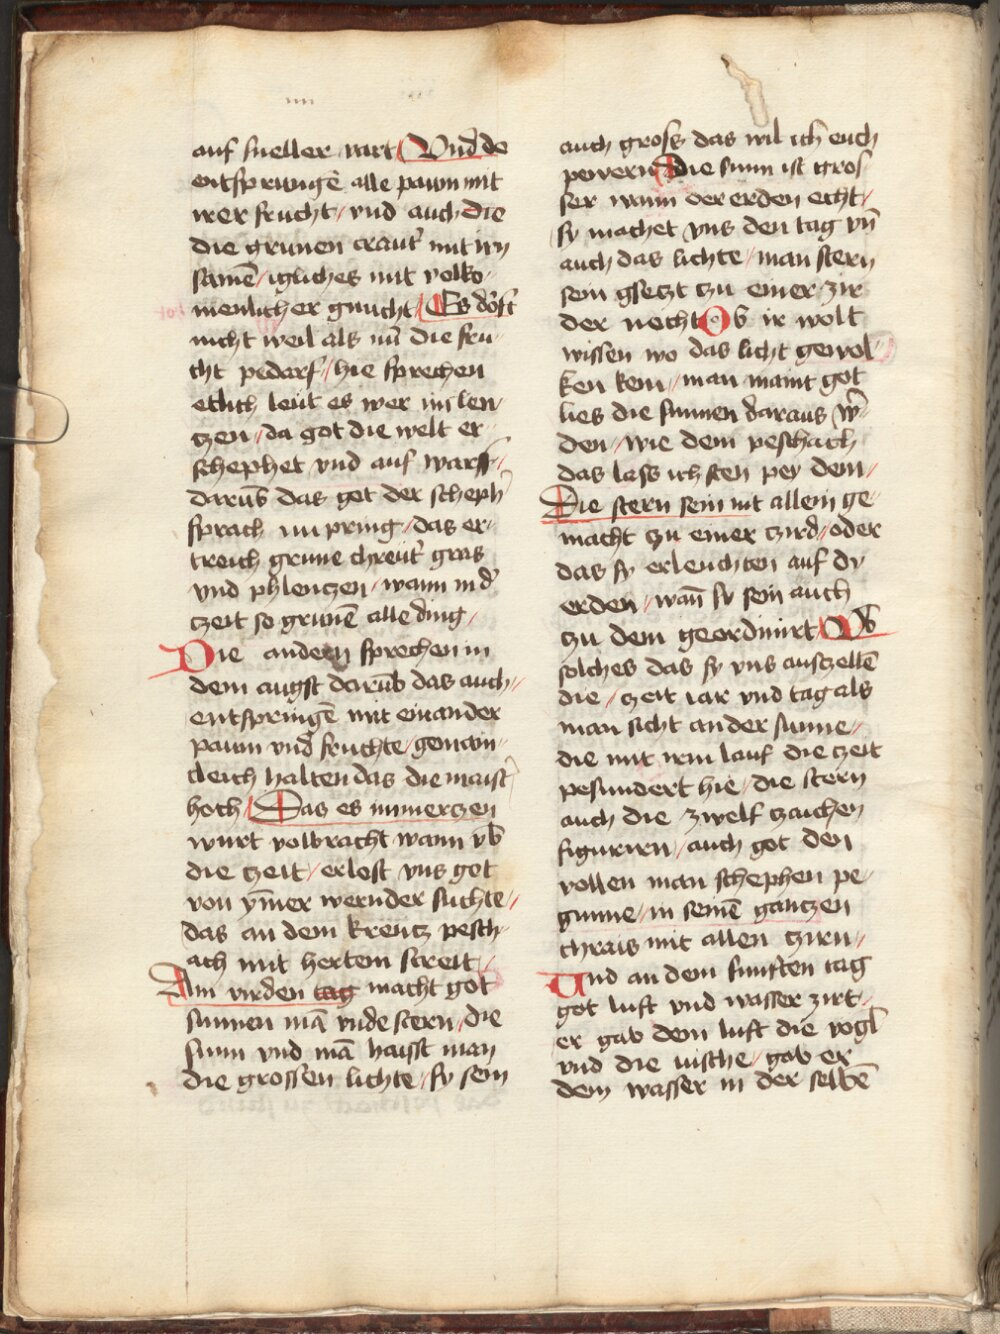 auf sneller vart Vnd do
entspringē alle pawm mit
irer frucht / vnd auch die
die grunen craut̕ mit irn
samē / igliches mit volko-
menlicher gnucht / Es dorft
nicht weil als nū die fru-
cht pedarf / hie sprechen
etlich leut es wer im len-
tzen / da got die welt er-
schephet vnd auf warf /
darūb das got der scheph̕
sprach nu pring / das er-
treich grune chreut̕ gras
vnd phlentzen / wann in d̕
zeit so grunē alle ding /
Die andern sprechen in
dem augst darūb das auch /
entspringē mit einander
pawm vnd fruchte / gemain-
cleich halten das die maist̕
hoch / Das es in mertzen
wurt volbracht wann vb̕
die tzeit / erlost vns got
von ym̄er wernder suchte /
das an dem kreutz pesch-
ach mit hertem streit /
Am virden tag macht got
sunnen mā vnde stern / die
sunn vnd mā haisst man
die grossen lichte / sy sein
auch gross das wil ich euch
pewern Die sunn ist gros-
ser wann der erden echt /
sy machet vns den tag vn̄
auch das lichte / man stern
sein gsetzt tzu einer zir
der necht Ob ir wolt
wissen wo das licht gewol-
ken kem / man maint got
lies die sunnen daraus w̕-
den / wie dem peschach
das lass ich sten pey dem /
Die stern sein nit allein ge-
macht tzu einer tzird / oder
das sy erleuchten auf dy
erden / wan̄ sy sein auch
tzu dem geordinirt Ob
solches das sy vns auszellē
die / tzeit iar vnd tag als
man sicht an der sunne /
die mit irm lauf die tzeit
pesundert hie / die stern
auch die zwelf tzaichen
figurirn / auch got den
vollen man schephen pe-
gunne / in seinē gantzen
chrais mit allen tzirn /
Vnd an dem funften tag
got luft vnd wasser zirt /
er gab dem luft die vogl̕
vnd die vische / gab er
dem wasser in der selbē